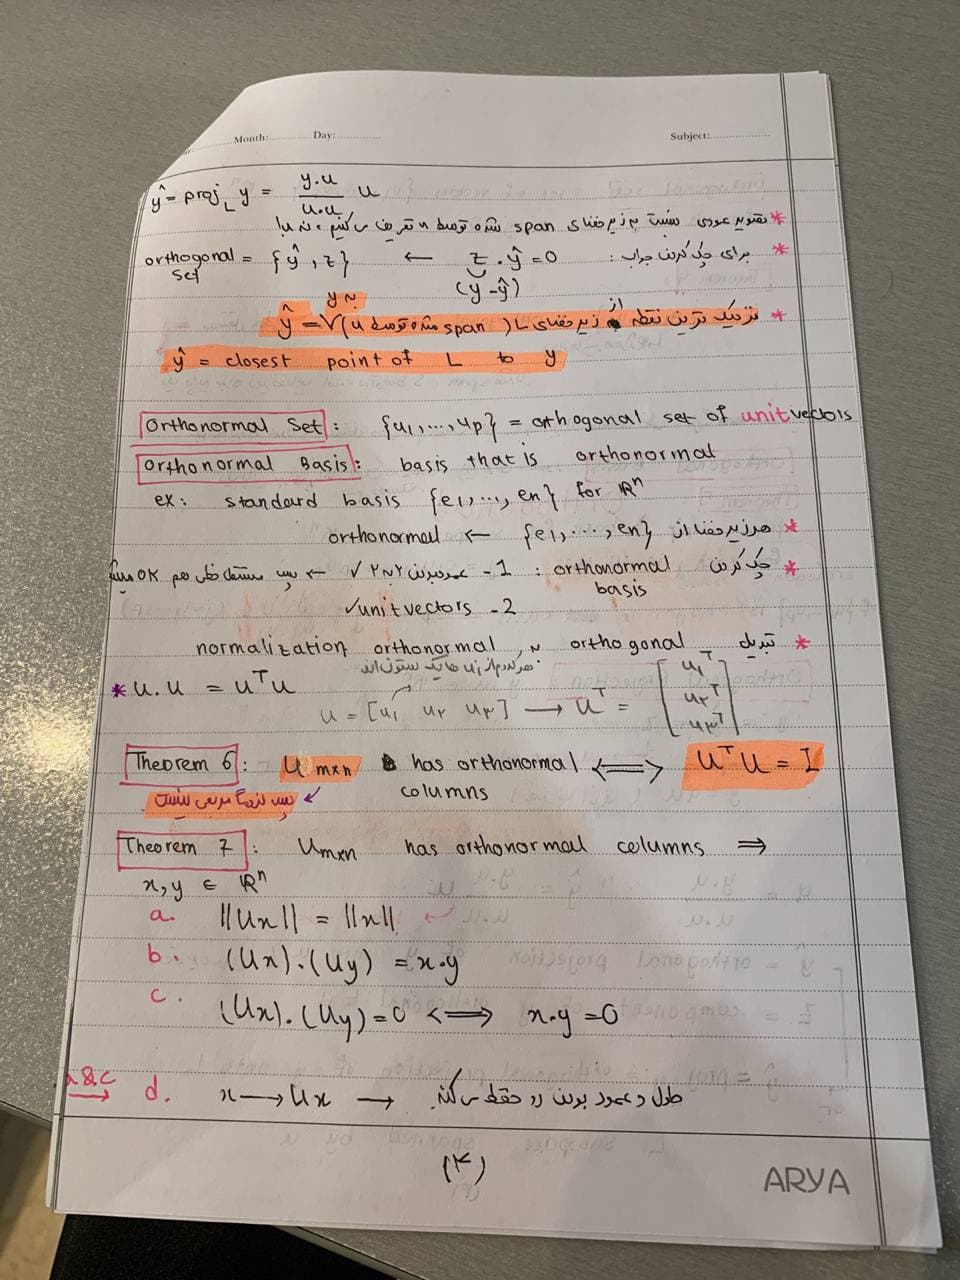 Month: Day: Subject:
ŷ = proj_L y = (y.u / u.u) u
* تصویر عمودی نسبت به زیرفضای span شده توسط u تعریف می‌کنیم، نه با
* برای چک کردن جواب: z . ŷ = 0 ← {ŷ, z} = orthogonal set
(y - ŷ)
* نزدیک ترین نقطه از زیرفضای L (span شده توسط u) به y = ŷ
ŷ = closest point of L to y
Orthonormal Set : {u1, ..., up} = orthogonal set of unit vectors
Orthonormal Basis : basis that is orthonormal
ex: standard basis {e1, ..., en} for ℝⁿ
* هر زیرفضا از {e1, ..., en} ← orthonormal
* چک کردن orthonormal basis : 1- عمود بودن ۲ به ۲ ✓ ← پس مستقل خطی هم OK میشه
2- unit vectors ✓
* تبدیل orthogonal به orthonormal normalization
هر کدوم از uها یک ستون اند
* u.u = uᵀu
U = [u1 u۲ u۳] → Uᵀ = [u1ᵀ
u۲ᵀ
u۳ᵀ]
Theorem 6 : U m×n has orthonormal columns ⟺ UᵀU = I
پس لزوما مربعی نیست
Theorem 7 : Um×n has orthonormal columns ⇒
x, y ∈ ℝⁿ
a. ||Ux|| = ||x||
b. (Ux).(Uy) = x.y
c. (Ux).(Uy) = 0 ⟺ x.y = 0
a&c → d. x → Ux → طول و عمود بودن رو حفظ می‌کند
(۴)
ARYA